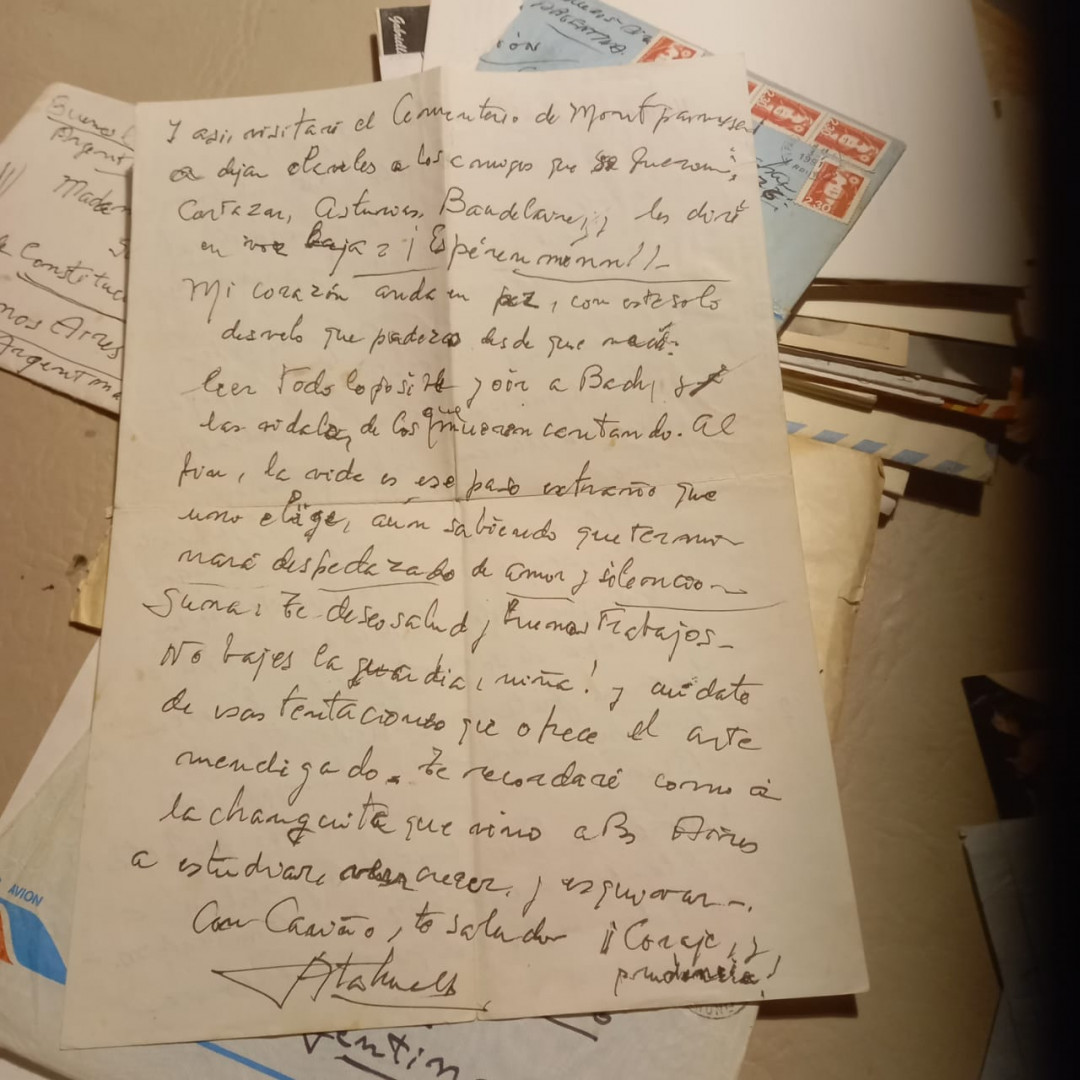 Gabriell
ARGENTINA
Buenos
Argent
Madam
Constituc
nos Aires
Argentina
Y así, visitaré el Cementerio de Montparnasse
a dejar claveles a los amigos que se fueron;
Cortazar, Asturias, Baudelaire, y les diré
en voz baja: ¡Espérenmenn!!-
Mi corazón anda en paz, con este solo
desvelo que padezco desde que nací:
leer todo lo posible y oír a Bach, y
las vidalas de los que mueren cantando. Al
fin, la vida es ese paso extraño que
uno elige, aún sabiendo que termi
nará despedazado de amor y silencio-
Suma: te deseo salud y buenos trabajos-
No bajes la guardia, niña! y cuidate
de esas tentaciones que ofrece el arte
mendigado. te recordaré como a
la changuita que vino a Bs Aires
a estudiar, crecer, y esquivar-.
Con Cariño, te saluda ¡¡Coraje, y
prudencia!
Atahualpa
AVION
2.30